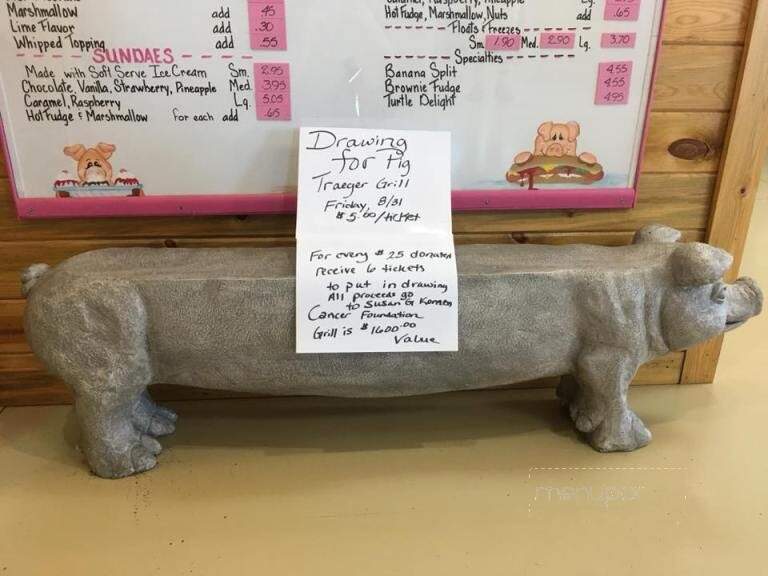 Marshmallow add .45
Lime Flavor add .30
Whipped Topping add .55
SUNDAES
Made with Soft Serve Ice Cream Sm. 2.95
Chocolate, Vanilla, Strawberry, Pineapple Med. 3.95
Caramel, Raspberry Lg. 5.05
Hot Fudge & Marshmallow for each add .65
Caramel, Raspberry, Pineapple
Hot Fudge, Marshmallow, Nuts add .65
Floats & Freezes
Sm. 1.90 Med. 2.90 Lg. 3.70
Specialties
Banana Split 4.55
Brownie Fudge 4.55
Turtle Delight 4.95
Drawing
for Pig
Traeger Grill
Friday, 8/31
$5.00/ticket
For every $25 donated
receive 6 tickets
to put in drawing
All proceeds go
to Susan G Komen
Cancer Foundation
Grill is $1600.00
Value
menupix